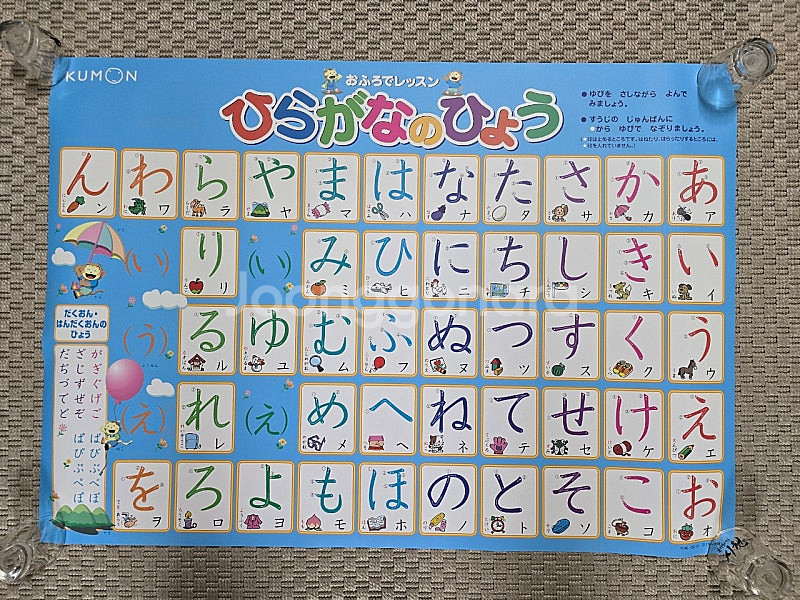 KUMON
おふろでレッスン
ひらがなのひょう
●ゆびを さしながら よんで
みましょう。
●すうじの じゅんばんに
●から ゆびで なぞりましょう。
ん わ ら や ま は な た さ か あ
ン ワ ラ ヤ マ ハ ナ タ サ カ ア
(い) り (い) み ひ に ち し き い
リ ミ ヒ ニ チ シ キ イ
(う) る ゆ む ふ ぬ つ す く う
ル ユ ム フ ヌ ツ ス ク ウ
(え) れ (え) め へ ね て せ け え
レ メ ヘ ネ テ セ ケ エ
を ろ よ も ほ の と そ こ お
ヲ ロ ヨ モ ホ ノ ト ソ コ オ
だくおん・
はんだくおんの
ひょう
がぎぐげご
ざじずぜぞ
だぢづでど
ばびぶべぼ
ぱぴぷぺぽ
Joonggonara